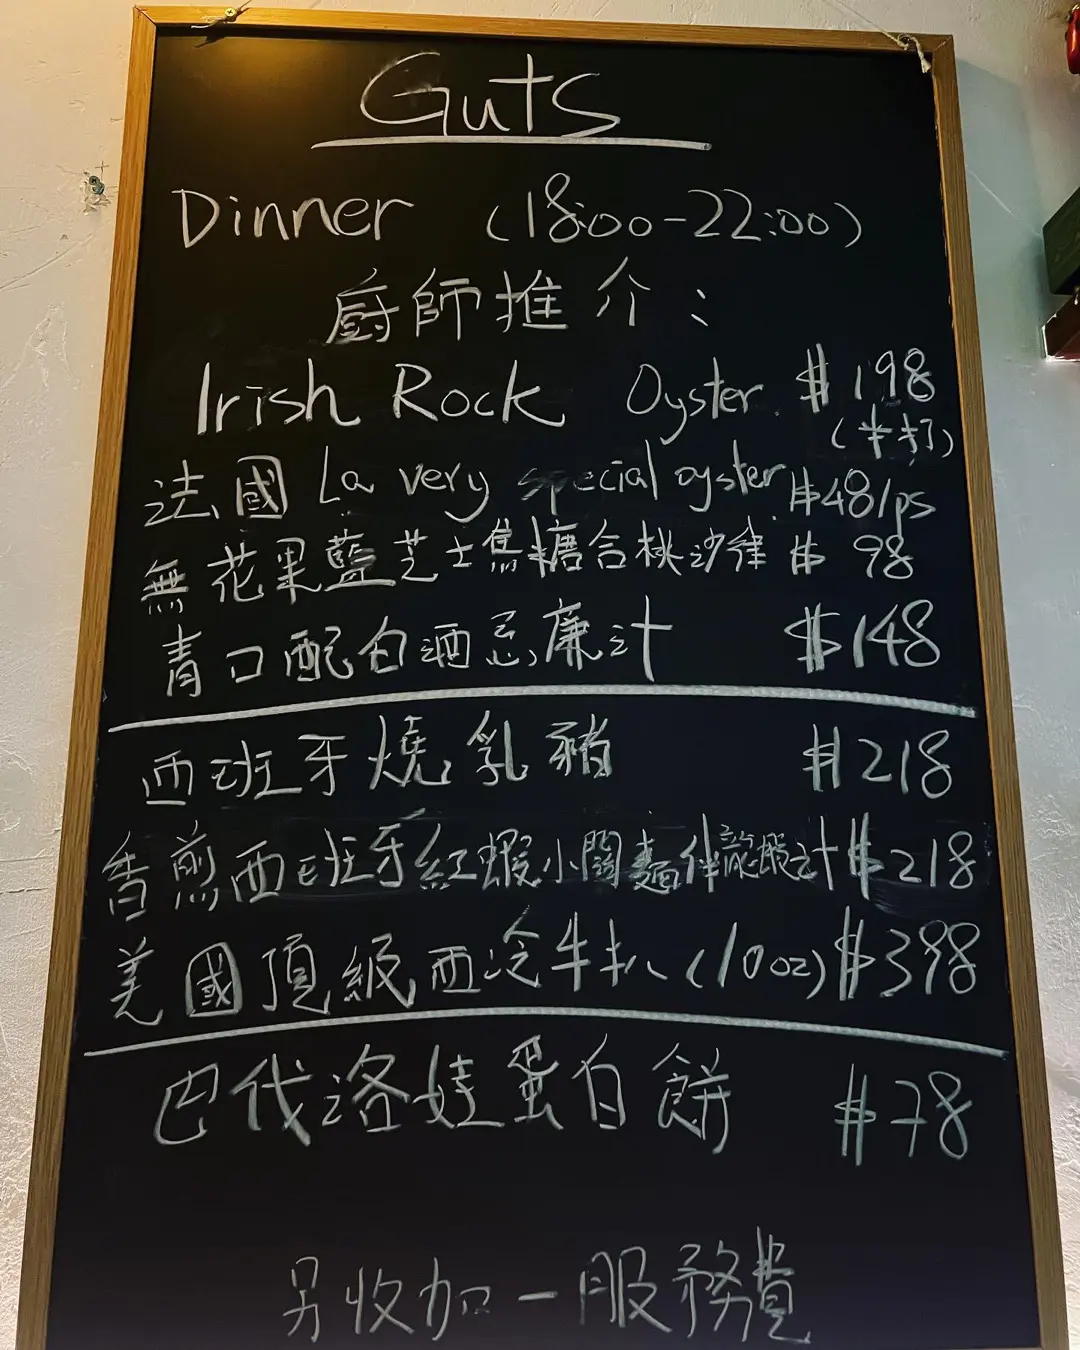 Guts
Dinner (18:00-22:00)
廚師推介:
Irish Rock Oyster $198
(半打)
法國 La very special oyster $48/ps
無花果藍芝士焦糖合桃沙律 $98
青口配白酒忌廉汁 $148
西班牙燒乳豬 $218
香煎西班牙紅蝦小闊麵伴龍蝦汁 $218
美國頂級西冷牛扒 (10oz) $398
巴伐洛娃蛋白餅 $78
另收加一服務費